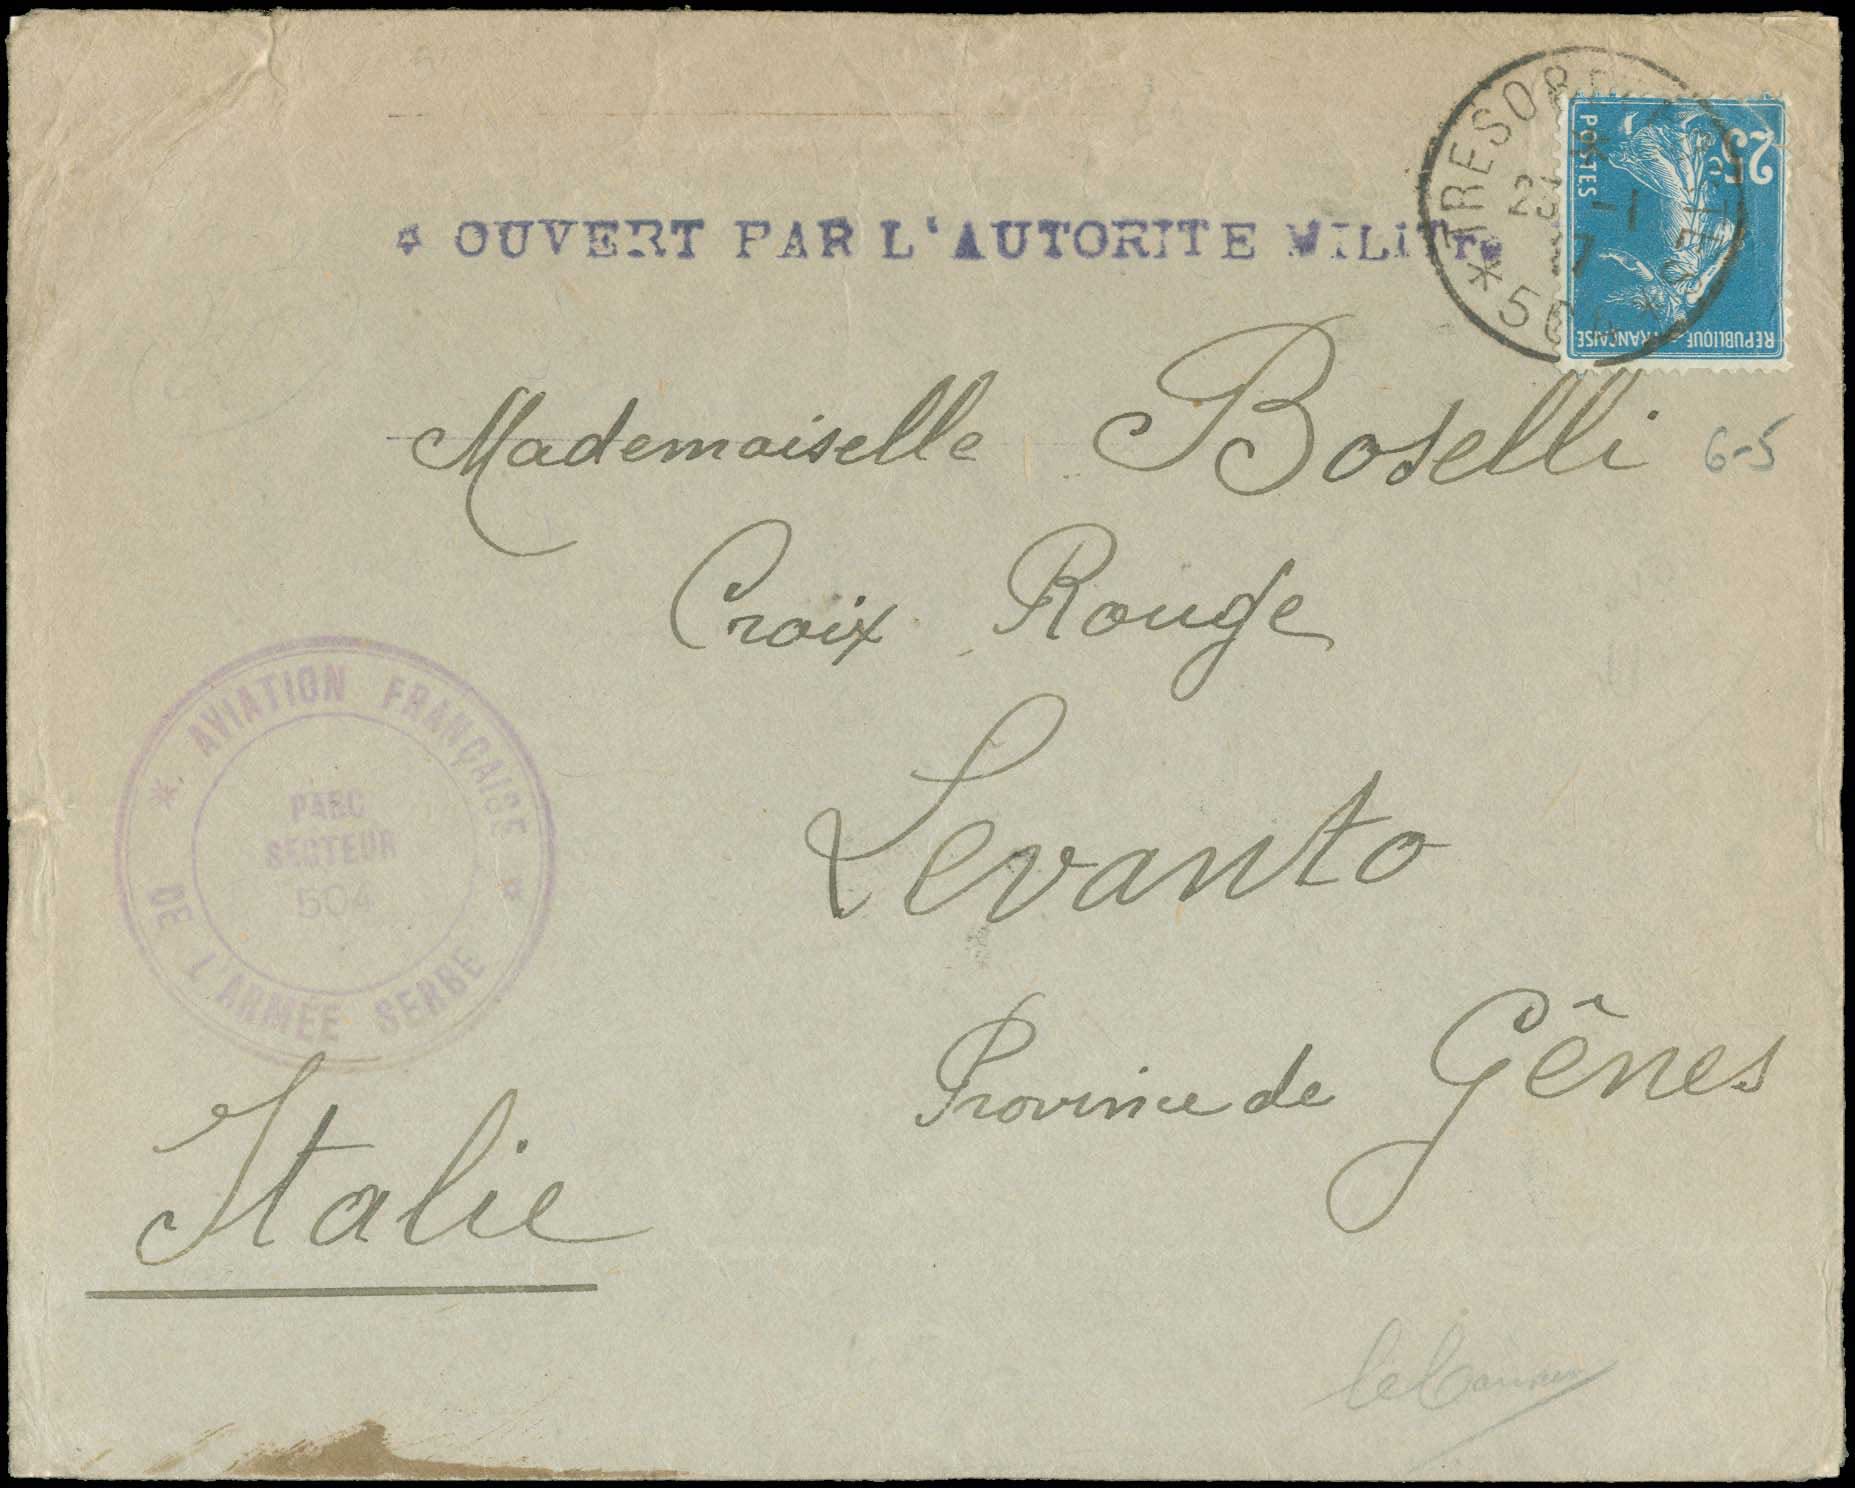 * OUVERT PAR L'AUTORITE MILITre
TRESOR ET POSTES
* 504 *
25
POSTES
REPUBLIQUE FRANÇAISE
Mademoiselle Boselli
6-5
Croix Rouge
Levanto
Province de Gênes
Italie
* AVIATION FRANÇAISE *
DE L'ARMÉE SERBE
PARC
SECTEUR
504